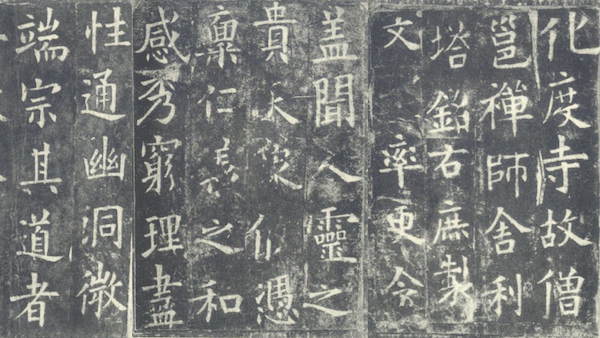 化度寺故僧
邕禪師舍利
塔銘右庶製
文 率更令
盖聞人靈之
貴天象 憑
稟仁義之和
感秀窮理盡
性通幽洞微
端宗其道者